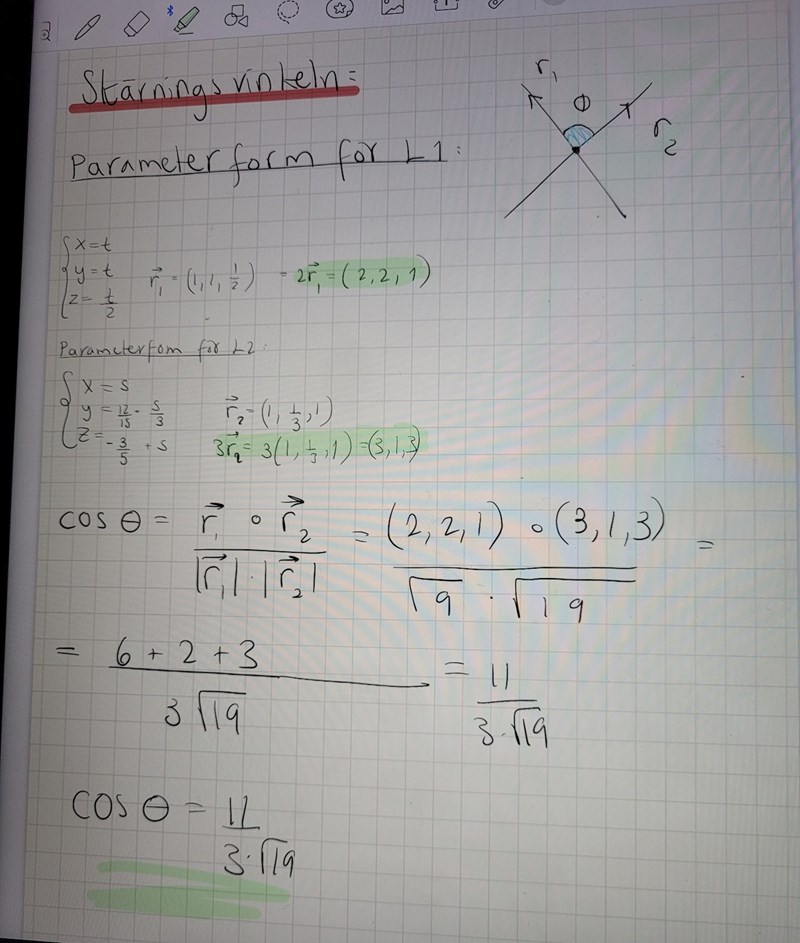 Stärningsvinkeln:
r₁ Φ r₂
Parameterform för L1:
x = t
y = t
z = t/2
r⃗₁ = (1, 1, 1/2) = 2r⃗₁ = (2, 2, 1)
Parameterfom för L2:
x = s
y = 12/15 - s/3
z = -3/5 + s
r⃗₂ = (1, 1/3, 1)
3r⃗₂ = 3(1, 1/3, 1) = (3, 1, 3)
cos θ = r⃗₁ ∘ r⃗₂ / |r⃗₁| · |r⃗₂| = (2, 2, 1) ∘ (3, 1, 3) / √9 · √19 =
= 6 + 2 + 3 / 3√19 = 11 / 3·√19
cos θ = 11 / 3·√19